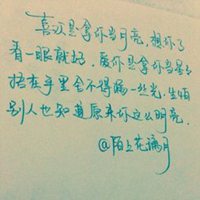 喜欢是拿你当月亮，想你了
看一眼就好，爱你是拿你当星星
捂在手里舍不得漏一丝光，生怕
别人也知道原来你这么明亮。
@陌上花满月